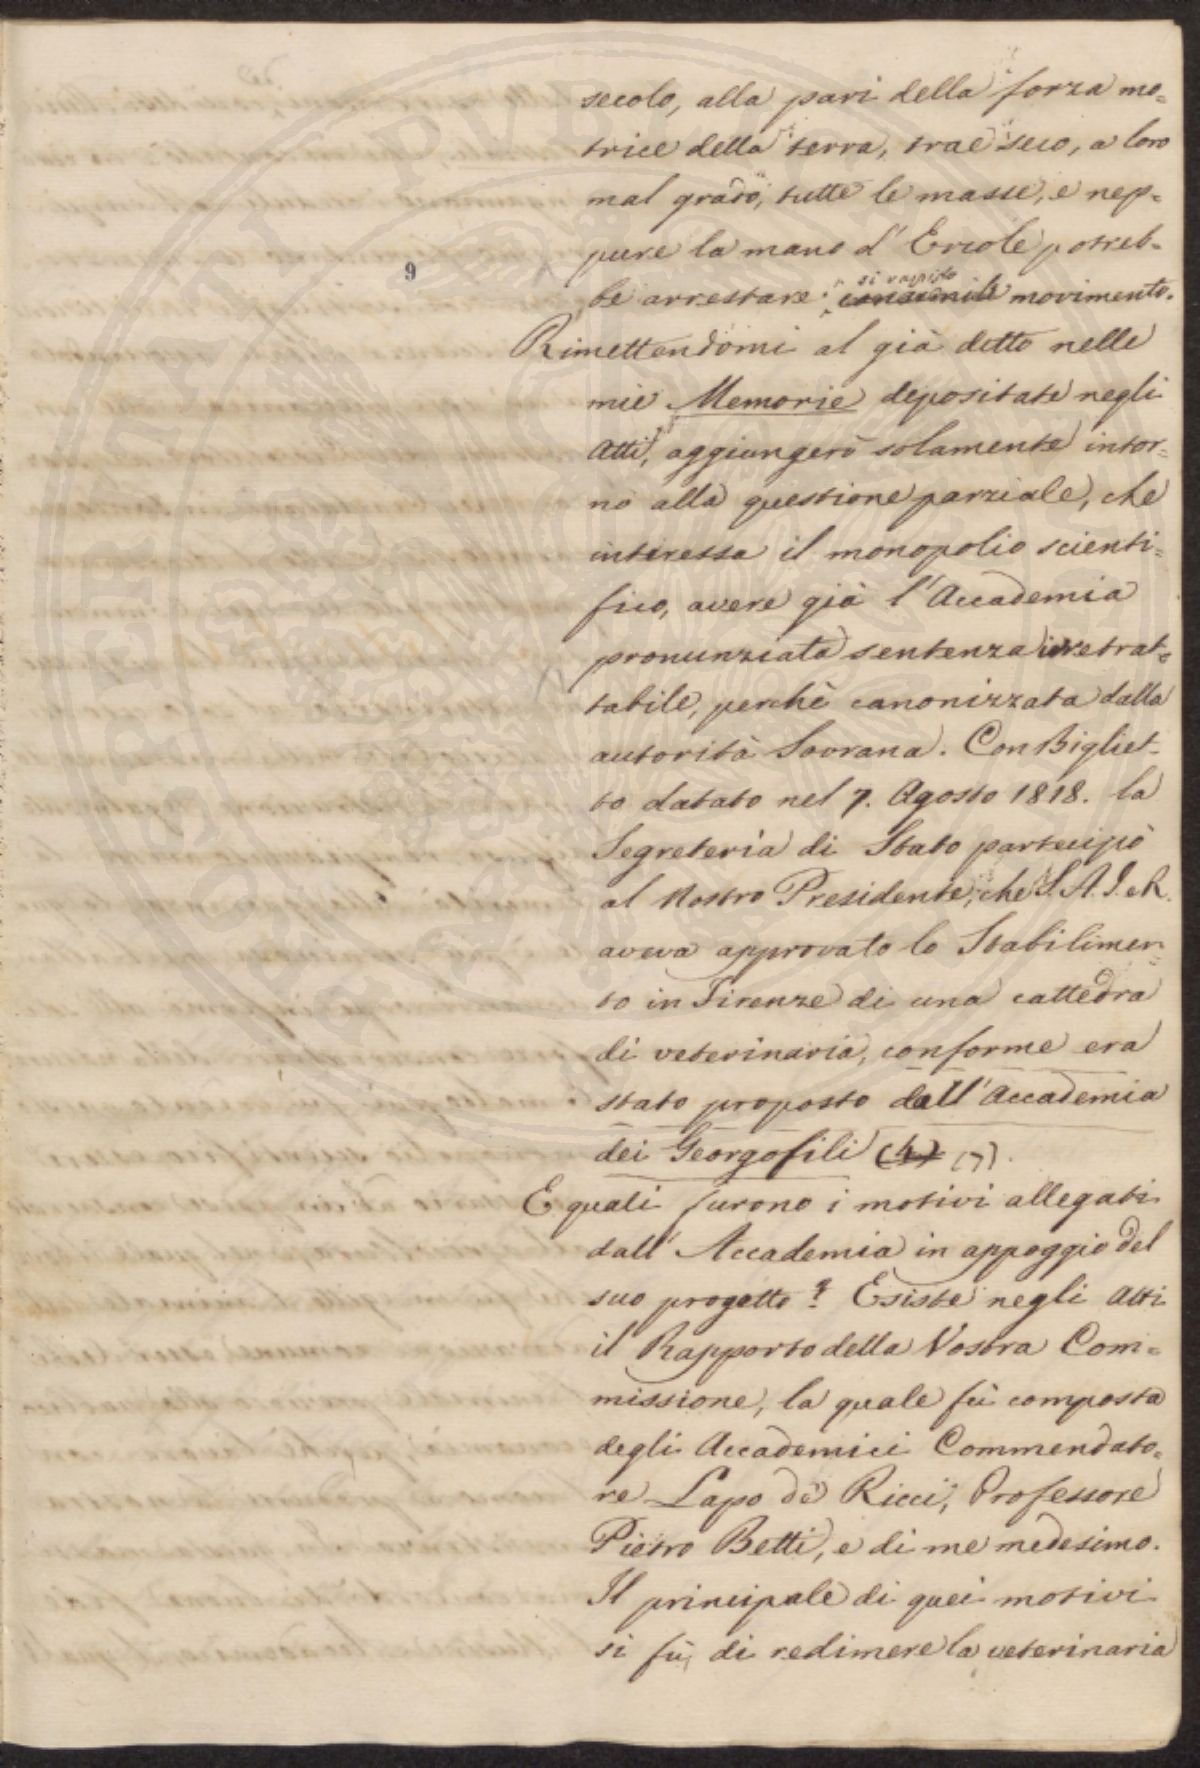 secolo, alla pari della forza mo=
trice della terra, trae seco, a loro
mal grado, tutte le masse, e nep=
pure la mano d'Ercole potreb=
9
si rapido
be arrestare consimile movimento.
Rimettendomi al già detto nelle
mie Memorie depositate negli
Atti, aggiungerò solamente intor=
no alla questione parziale, che
interessa il monopolio scienti=
fico, avere già l'Accademia
pronunziata sentenza irretrat=
tabile, perchè canonizzata dalla
autorità Sovrana. Con Bigliet=
to datato nel 7. Agosto 1818. la
Segreteria di Stato partecipò
al Nostro Presidente, che S.A.I. e R.
aveva approvato lo Stabilimen=
to in Firenze di una cattedra
di veterinaria, conforme era
stato proposto dall'Accademia
dei Georgofili (4) (7).
E quali furono i motivi allegati
dall'Accademia in appoggio del
suo progetto? Esiste negli Atti
il Rapporto della Vostra Com=
missione, la quale fù composta
degli Accademici Commendato=
re Lapo de Ricci, Professore
Pietro Betti, e di me medesimo.
Il principale di quei motivi
si fù, di redimere la veterinaria